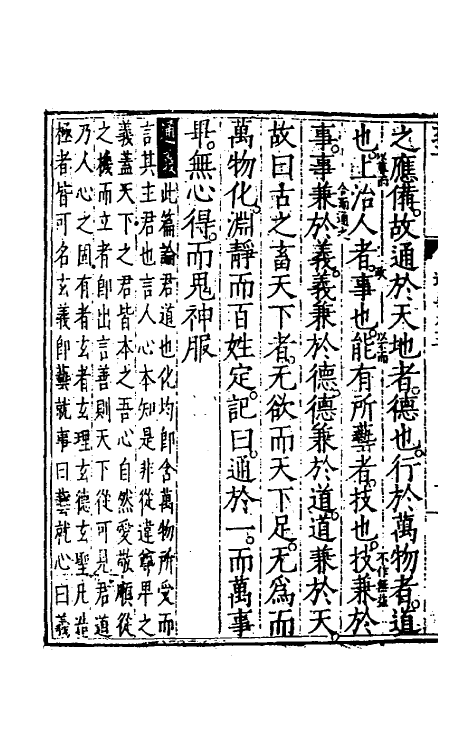 之應備故通於天地者德也行於萬物者道
也上治人者事也能有所藝者技也技兼於
事事兼於義義兼於德德兼於道道兼於天
故曰古之畜天下者无欲而天下足无爲而
萬物化淵靜而百姓定記曰通於一而萬事
畢無心得而鬼神服
通義此篇論君道也化均即含萬物所受而
言其主君也言人心本知是非從違尊卑之
義蓋天下之君皆本之吾心自然愛敬順從
之機而立者即出言善則天下從可見君道
乃人心之固有者玄者玄理玄德玄聖凡造
極者皆可名玄義即藝就事曰藝就心曰義